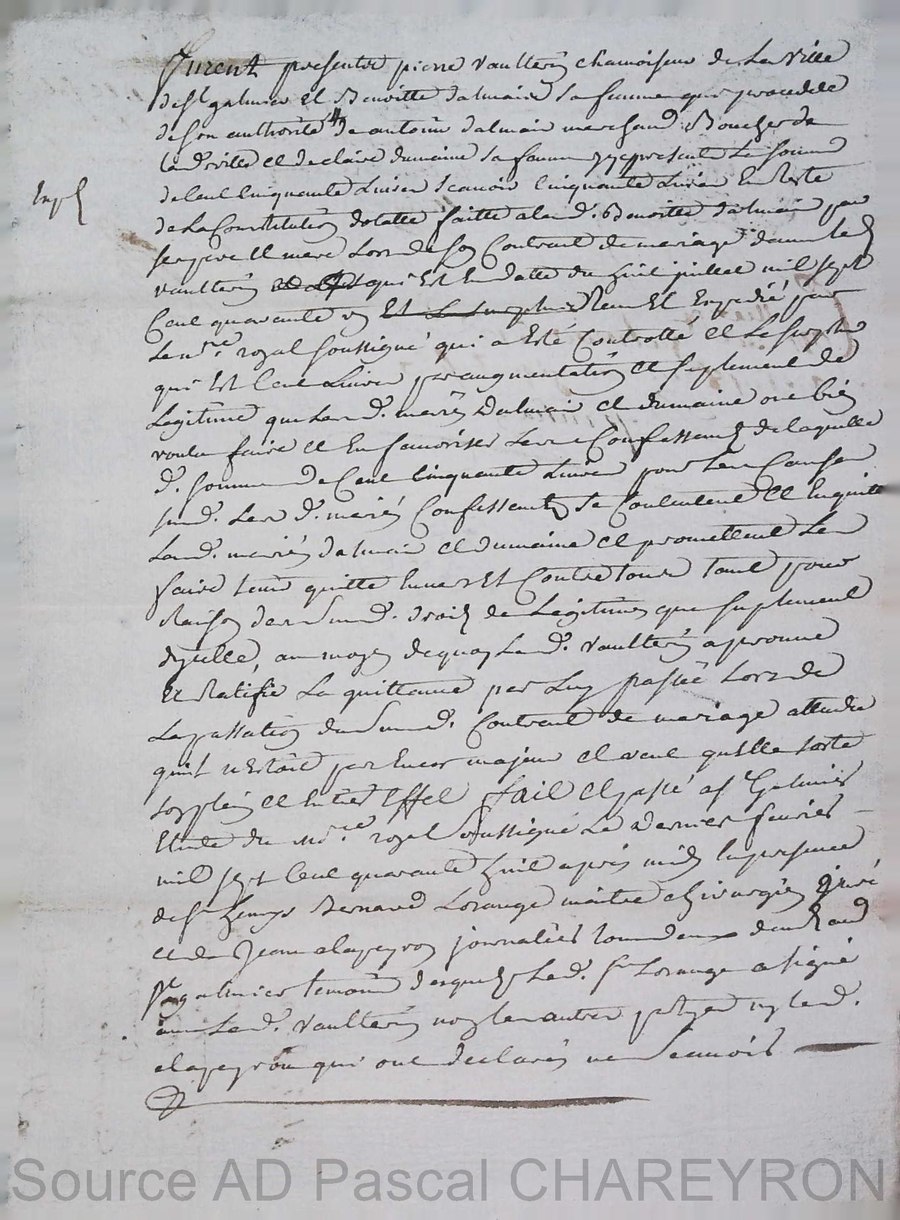 Furent presents pierre vaultrin chamoiseur de la ville
de st galmier et Benoitte dalmais sa femme qui procedde
de son authorité de antoine dalmais marchand Boucher de
lad. ville et de claire dumaine sa femme present la somme
Exp
de Cent Cinquante Livres scavoir Cinquante Livres En Reste
de La Constitution dotalle faitte a lad. Benoitte dalmais par
ses pere et mere Lors de son Contract de mariage dans led.
vaultrin qui Est En datte du huit juillet mil sept
Cent quarante Receu Et Expedié par
Le nre. royal soussigné qui a Esté Controllé et Le surplus
qui Est Cent Livres par augmentation et suplement de
Legitime que lesd. mariés Dalmais et dumaine ont bien
voulu faire et En favoriser Confessents de laquelle
d. somme de Cent Cinquante Livres pour les Causes
susd. les d. mariés Confessents se Contentent et En quitte
lesd. mariés dalmais et dumaine et promettent les
faire tenir quitte Envers Et Contre tous tant pour
Raison des susd. droits de Legitimes que suplement
dycelle, au moyen de quoy led. vaultrin approuve
Et Ratifie La quittance par Luy passée Lors de
La passation du susd. Contract de mariage attendu
quil nestoit pas Encor majeur et veut quelle sorte
son plein et Entier Effet fait et passé a st Galmier
Etude du nore. royal soussigné Le dernier fevrier
mil sept Cent quarante huit après midy En presence
de sr Bernard Lorange maitre chirurgien juré
et de Jean alapeyron journalier tous deux dud.
st galmier temoins desquels Led. sr Lorange a signé
avec Led. vaultrin non les autres partyes ny led.
alapeyron qui ont declarés ne scavoir
Source AD Pascal CHAREYRON